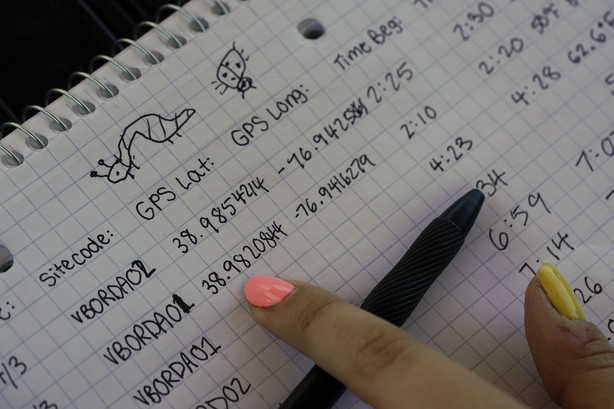 Sitecode: GPS Lat: GPS Long: Time Begi:
VBORDA02 38.9854214 2:25 2:30
VBORDA01 38.9820844 -76.9416279 2:10 2:20
VBORDA01 4:23 4:28 62.6
RDA02 34
6:59 7:0
7:14
26